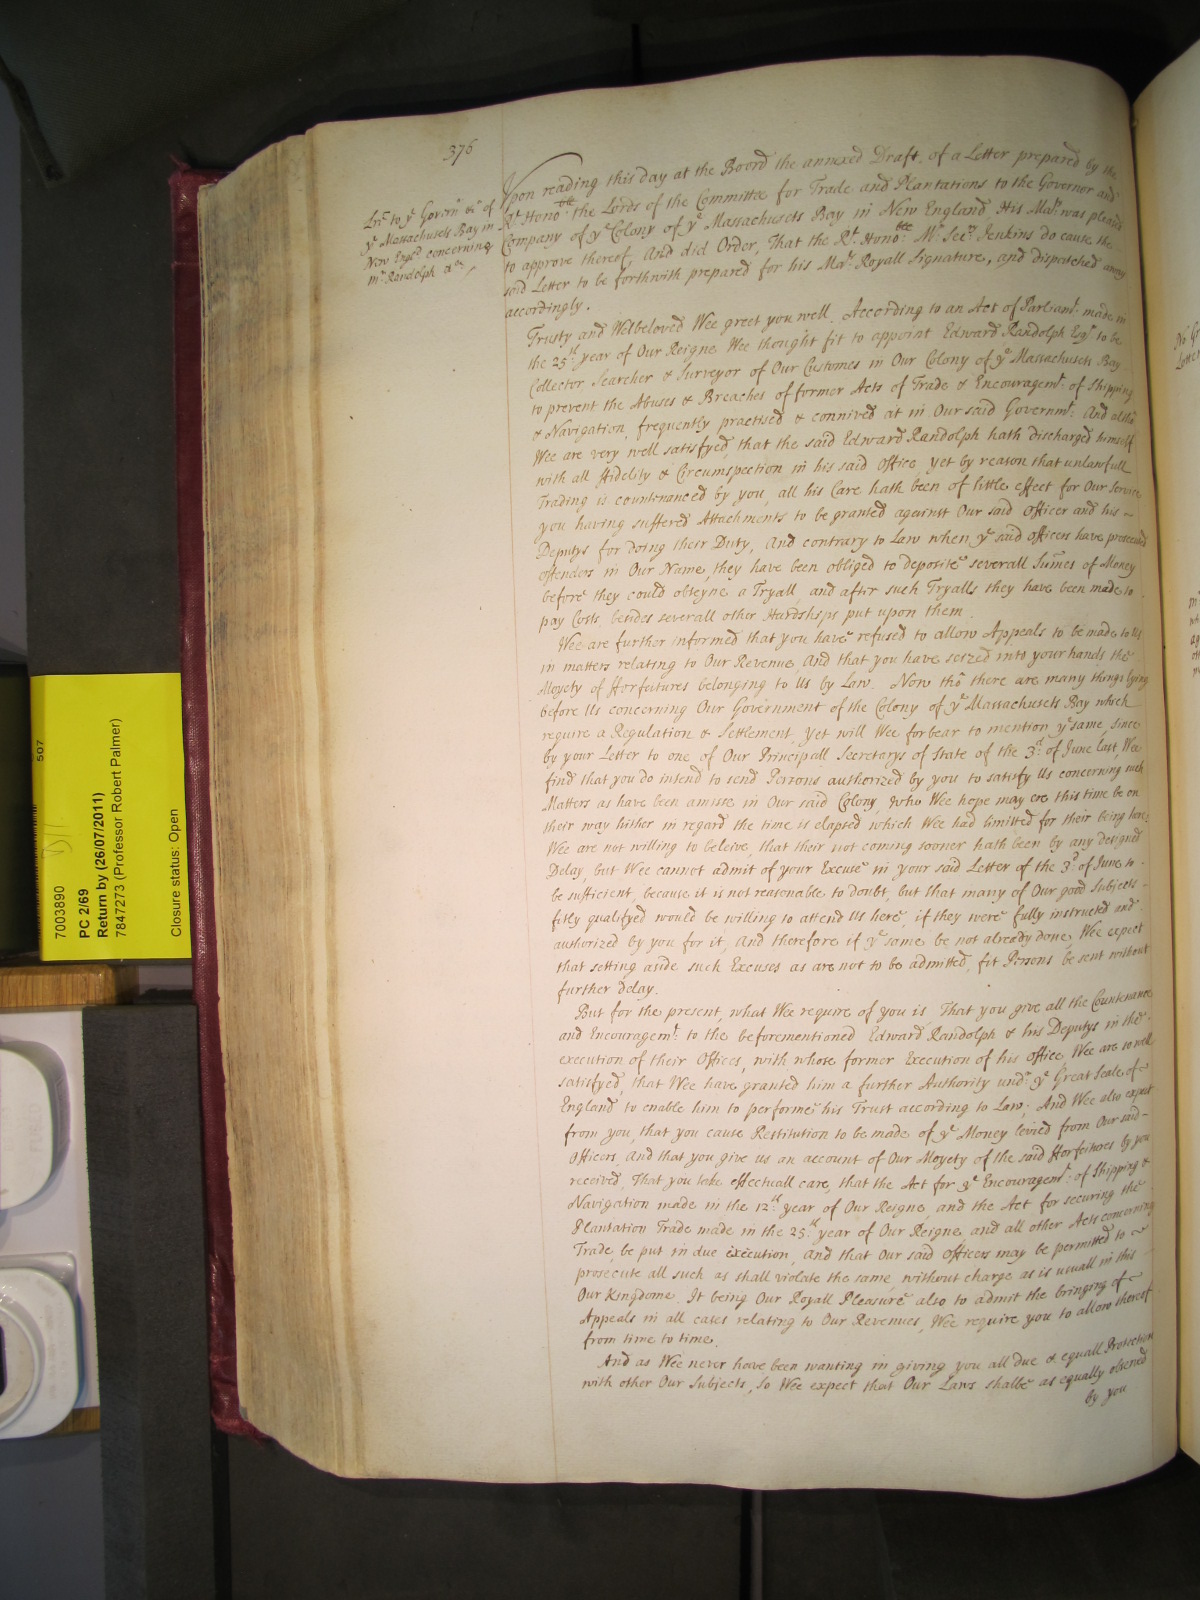 376
Lre to ye Govern &c of
ye Massachusets Bay in
New Engld concerning
mr Randolph &c
Upon reading this day at the Board the annexed Draft of a Letter prepared by the
Rt Honoble the Lords of the Committee for Trade and Plantations to the Governor and
Company of ye Colony of ye Massachusets Bay in New England, His Maty was pleasd
to approve thereof, And did Order, That the Rt Honoble Mr Secry Jenkins do cause the
said Letter to be forthwith prepared for his Mats Royall Signature, and dispatched away
accordingly.
Trusty and Welbeloved Wee greet you well. According to an Act of Parliamt made in
the 25th year of Our Reigne Wee thought fit to appoint Edward Randolph Esqr to be
Collector Searcher & Surveyor of Our Customes in Our Colony of ye Massachusets Bay
to prevent the Abuses & Breaches of former Acts of Trade & Encouragemt of Shipping
& Navigation, frequently practised & connived at in Our said Governmt: And altho
Wee are very well satisfyed, that the said Edward Randolph hath discharged himself
with all ffidelity & Circumspection in his said Office, yet by reason that unlawfull
Trading is countenanced by you, all his Care hath been of little effect for Our Service
you having suffered Attachments to be granted against Our said Officer and his
Deputys for doing their Duty, And contrary to Law when ye said Officers have prosecuted
offenders in Our Name, they have been obliged to deposite severall Sumes of Money
before they could obteyne a Tryall, and after such Tryalls they have been made to
pay Costs besides severall other Hardships put upon them
Wee are further informed that you have refused to allow Appeals to be made to Us
in matters relating to Our Revenue And that you have seized into your hands the
Moyety of fforfeitures belonging to Us by Law. Now tho there are many things lying
before Us concerning Our Government of the Colony of ye Massachusets Bay which
require a Regulation & Settlement, yet will Wee forbear to mention ye same, since
by your Letter to one of Our Principall Secretarys of State of the 3d of June last, Wee
find that you do intend to send Persons authorized by you to satisfy Us concerning such
Matters as have been amisse in Our said Colony, who Wee hope may ere this time be on
their way hither in regard the time is elapsed which Wee had limitted for their being here;
Wee are not willing to beleive, that their not coming sooner hath been by any designed
Delay, but Wee cannot admit of your Excuse in your said Letter of the 3d of June to
be sufficient, because it is not reasonable to doubt, but that many of Our good Subjects
fitly qualifyed would be willing to attend Us here if they were fully instructed and
authorized by you for it, And therefore if ye same be not already done, Wee expect
that setting aside such Excuses as are not to be admitted, fit Persons be sent without
further delay.
But for the present, what Wee require of you is That you give all the Countenance
and Encouragemt to the beforementioned Edward Randolph & his Deputys in the
execution of their Offices, with whose former Execution of his office Wee are so well
satisfyed, that Wee have granted him a further Authority undr ye Great Seale of
England to enable him to performe his Trust according to Law; And Wee also expect
from you, that you cause Restitution to be made of ye Money levied from Our said
Officers, And that you give us an account of Our Moyety of the said fforfeitures by you
received, That you take effectuall care, that the Act for ye Encouragemt of Shipping &
Navigation made in the 12th year of Our Reigne, and the Act for securing the
Plantation Trade made in the 25th year of Our Reigne, and all other Acts concerning
Trade, be put in due execution, And that Our said Officers may be permitted to
prosecute all such as shall violate the same, without charge as is usuall in this
Our Kingdome. It being Our Royall Pleasure also to admit the bringing of
Appeals in all cases relating to Our Revenues, Wee require you to allow thereof
from time to time.
And as Wee never have been wanting in giving you all due & equall Protection
with other Our Subjects, So Wee expect that Our Laws shalbe as equally observed
by you
507
7003890
PC 2/69
Return by (26/07/2011)
7847273 (Professor Robert Palmer)
Closure status: Open